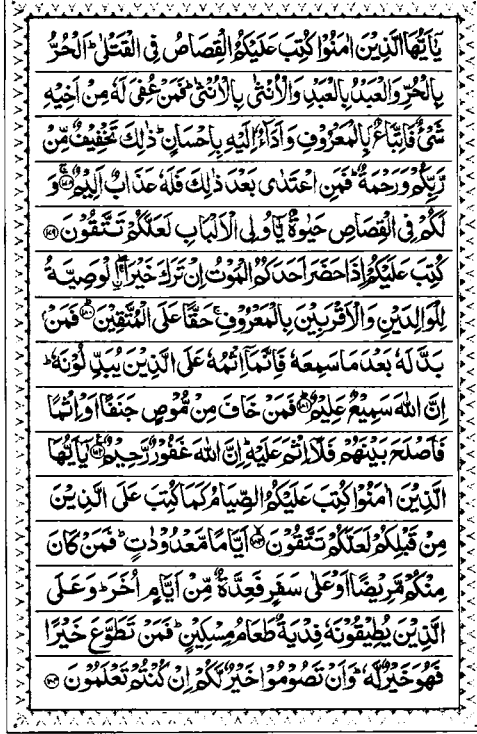 يٰۤاَيُّهَا الَّذِيْنَ اٰمَنُوْا كُتِبَ عَلَيْكُمُ الْقِصَاصُ فِى الْقَتْلٰىؕ اَلْحُرُّ
بِالْحُرِّ وَالْعَبْدُ بِالْعَبْدِ وَالْاُنْثٰى بِالْاُنْثٰىؕ فَمَنْ عُفِىَ لَهٗ مِنْ اَخِيْهِ
شَىْءٌ فَاتِّبَاعٌۢ بِالْمَعْرُوْفِ وَاَدَآءٌ اِلَيْهِ بِاِحْسَانٍؕ ذٰلِكَ تَخْفِيْفٌ مِّنْ
رَّبِّكُمْ وَرَحْمَةٌؕ فَمَنِ اعْتَدٰى بَعْدَ ذٰلِكَ فَلَهٗ عَذَابٌ اَلِيْمٌ ۝۱۷۸ وَ
لَكُمْ فِى الْقِصَاصِ حَيٰوةٌ يّٰۤاُولِى الْاَلْبَابِ لَعَلَّكُمْ تَتَّقُوْنَ ۝۱۷۹
كُتِبَ عَلَيْكُمْ اِذَا حَضَرَ اَحَدَكُمُ الْمَوْتُ اِنْ تَرَكَ خَيْرَاۖۚ اۨلْوَصِيَّةُ
لِلْوَالِدَيْنِ وَالْاَقْرَبِيْنَ بِالْمَعْرُوْفِۚ حَقًّا عَلَى الْمُتَّقِيْنَؕ ۝۱۸۰ فَمَنْۢ
بَدَّلَهٗ بَعْدَ مَا سَمِعَهٗ فَاِنَّمَاۤ اِثْمُهٗ عَلَى الَّذِيْنَ يُبَدِّلُوْنَهٗؕ
اِنَّ اللّٰهَ سَمِيْعٌ عَلِيْمٌؕ ۝۱۸۱ فَمَنْ خَافَ مِنْ مُّوْصٍ جَنَفًا اَوْ اِثْمًا
فَاَصْلَحَ بَيْنَهُمْ فَلَاۤ اِثْمَ عَلَيْهِؕ اِنَّ اللّٰهَ غَفُوْرٌ رَّحِيْمٌ ۝۱۸۲ يٰۤاَيُّهَا
الَّذِيْنَ اٰمَنُوْا كُتِبَ عَلَيْكُمُ الصِّيَامُ كَمَا كُتِبَ عَلَى الَّذِيْنَ
مِنْ قَبْلِكُمْ لَعَلَّكُمْ تَتَّقُوْنَۙ ۝۱۸۳ اَيَّامًا مَّعْدُوْدٰتٍؕ فَمَنْ كَانَ
مِنْكُمْ مَّرِيْضًا اَوْ عَلٰى سَفَرٍ فَعِدَّةٌ مِّنْ اَيَّامٍ اُخَرَؕ وَعَلَى
الَّذِيْنَ يُطِيْقُوْنَهٗ فِدْيَةٌ طَعَامُ مِسْكِيْنٍؕ فَمَنْ تَطَوَّعَ خَيْرًا
فَهُوَ خَيْرٌ لَّهٗؕ وَاَنْ تَصُوْمُوْا خَيْرٌ لَّكُمْ اِنْ كُنْتُمْ تَعْلَمُوْنَ ۝۱۸۴